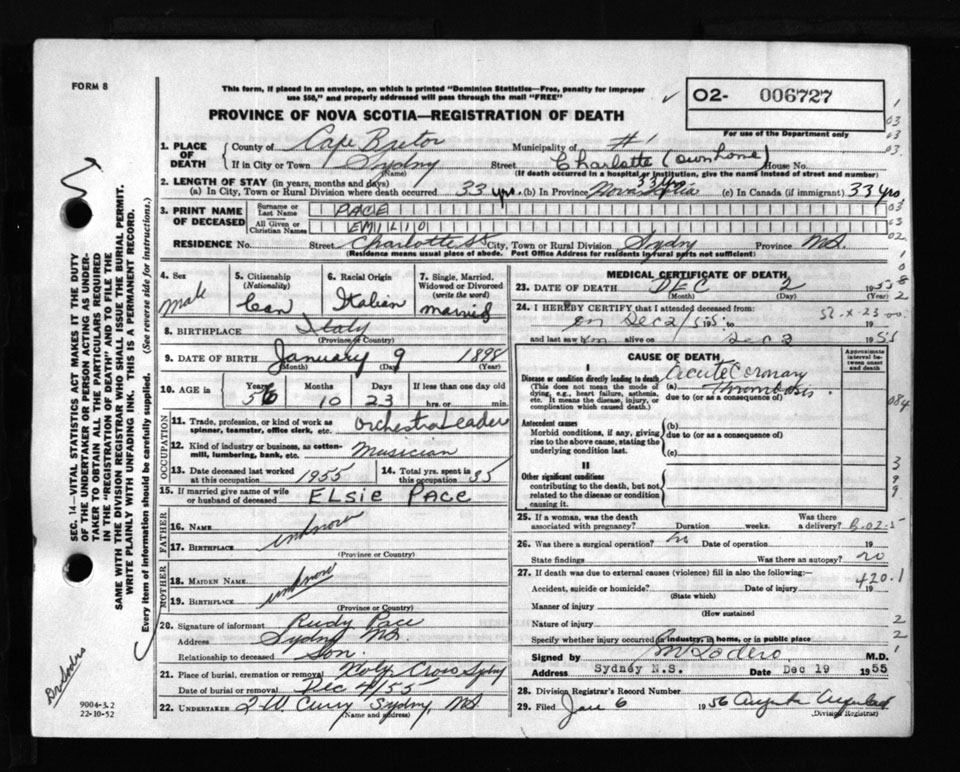 FORM 8
This form, if placed in an envelope, on which is printed "Dominion Statistics—Free, penalty for improper
use $50," and properly addressed will pass through the mail "FREE"
PROVINCE OF NOVA SCOTIA—REGISTRATION OF DEATH
O2- 006727
For use of the Department only
1. PLACE OF DEATH
County of Cape Breton Municipality of #1
If in City or Town Sydny Street Charlotte (own home) House No.
(Name) (If death occurred in a hospital or institution, give the name instead of street and number)
2. LENGTH OF STAY (in years, months and days)
(a) In City, Town or Rural Division where death occurred 33 yrs. (b) In Province Nova Scotia 33 yrs (c) In Canada (if immigrant) 33 yrs
3. PRINT NAME OF DECEASED
Surname or Last Name PACE
All Given or Christian Names EMILIO
RESIDENCE No. Street Charlotte St City, Town or Rural Division Sydny Province
(Residence means usual place of abode. Post Office Address for residents in rural parts not sufficient)
4. Sex Male
5. Citizenship (Nationality) Can
6. Racial Origin Italian
7. Single, Married, Widowed or Divorced (write the word) married
8. BIRTHPLACE Italy
(Province or Country)
9. DATE OF BIRTH January 9 1898
(Month) (Day) (Year)
10. AGE in Years 56 Months 10 Days 23 If less than one day old
hrs. or min.
OCCUPATION
11. Trade, profession, or kind of work as spinner, teamster, office clerk, etc. Orchestra Leader
12. Kind of industry or business, as cotton-mill, lumbering, bank, etc. Musician
13. Date deceased last worked at this occupation 1955
14. Total yrs. spent in this occupation 35
15. If married give name of wife or husband of deceased ELSIE PACE
FATHER
16. NAME unknown
17. BIRTHPLACE
(Province or Country)
MOTHER
18. MAIDEN NAME unknown
19. BIRTHPLACE
(Province or Country)
20. Signature of informant Rudy Pace
Address Sydny
Relationship to deceased Son.
21. Place of burial, cremation or removal Holy Cross Sydny
Date of burial or removal Dec 4/55
22. UNDERTAKER Curry Sydny,
(Name and address)
MEDICAL CERTIFICATE OF DEATH
23. DATE OF DEATH DEC 2 1955
(Month) (Day) (Year)
24. I HEREBY CERTIFY that I attended deceased from:
on Dec 2/55 to 19
and last saw him alive on Dec 1955
CAUSE OF DEATH
Approximate interval between onset and death
I
Disease or condition directly leading to death (a) Acute Coronary
(This does not mean the mode of dying, e.g., heart failure, asthenia, etc. It means the disease, injury, or complication which caused death.)
Thrombosis.
due to (or as a consequence of)
Antecedent causes
Morbid conditions, if any, giving rise to the above cause, stating the underlying condition last.
(b)
due to (or as a consequence of)
(c)
II
Other significant conditions
contributing to the death, but not related to the disease or condition causing it.
25. If a woman, was the death associated with pregnancy? Duration weeks. Was there a delivery?
26. Was there a surgical operation? no Date of operation 19
State findings Was there an autopsy? no
27. If death was due to external causes (violence) fill in also the following:—
420.1
Accident, suicide or homicide? Date of injury 19
(State which)
Manner of injury
(How sustained
Nature of injury
Specify whether injury occurred in industry, in home, or in public place
Signed by M.D.
Address Sydney N.S. Date Dec 19 1955
28. Division Registrar's Record Number
29. Filed Jan 6 1956
(Division Registrar)
SEC. 14—VITAL STATISTICS ACT MAKES IT THE DUTY
OF THE UNDERTAKER OR PERSON ACTING AS UNDER-
TAKER TO OBTAIN ALL THE PARTICULARS REQUIRED
IN THE "REGISTRATION OF DEATH" AND TO FILE THE
SAME WITH THE DIVISION REGISTRAR WHO SHALL ISSUE THE BURIAL PERMIT.
WRITE PLAINLY WITH UNFADING INK. THIS IS A PERMANENT RECORD.
Every item of information should be carefully supplied. (See reverse side for instructions.)
9004-3.2
22-10-52